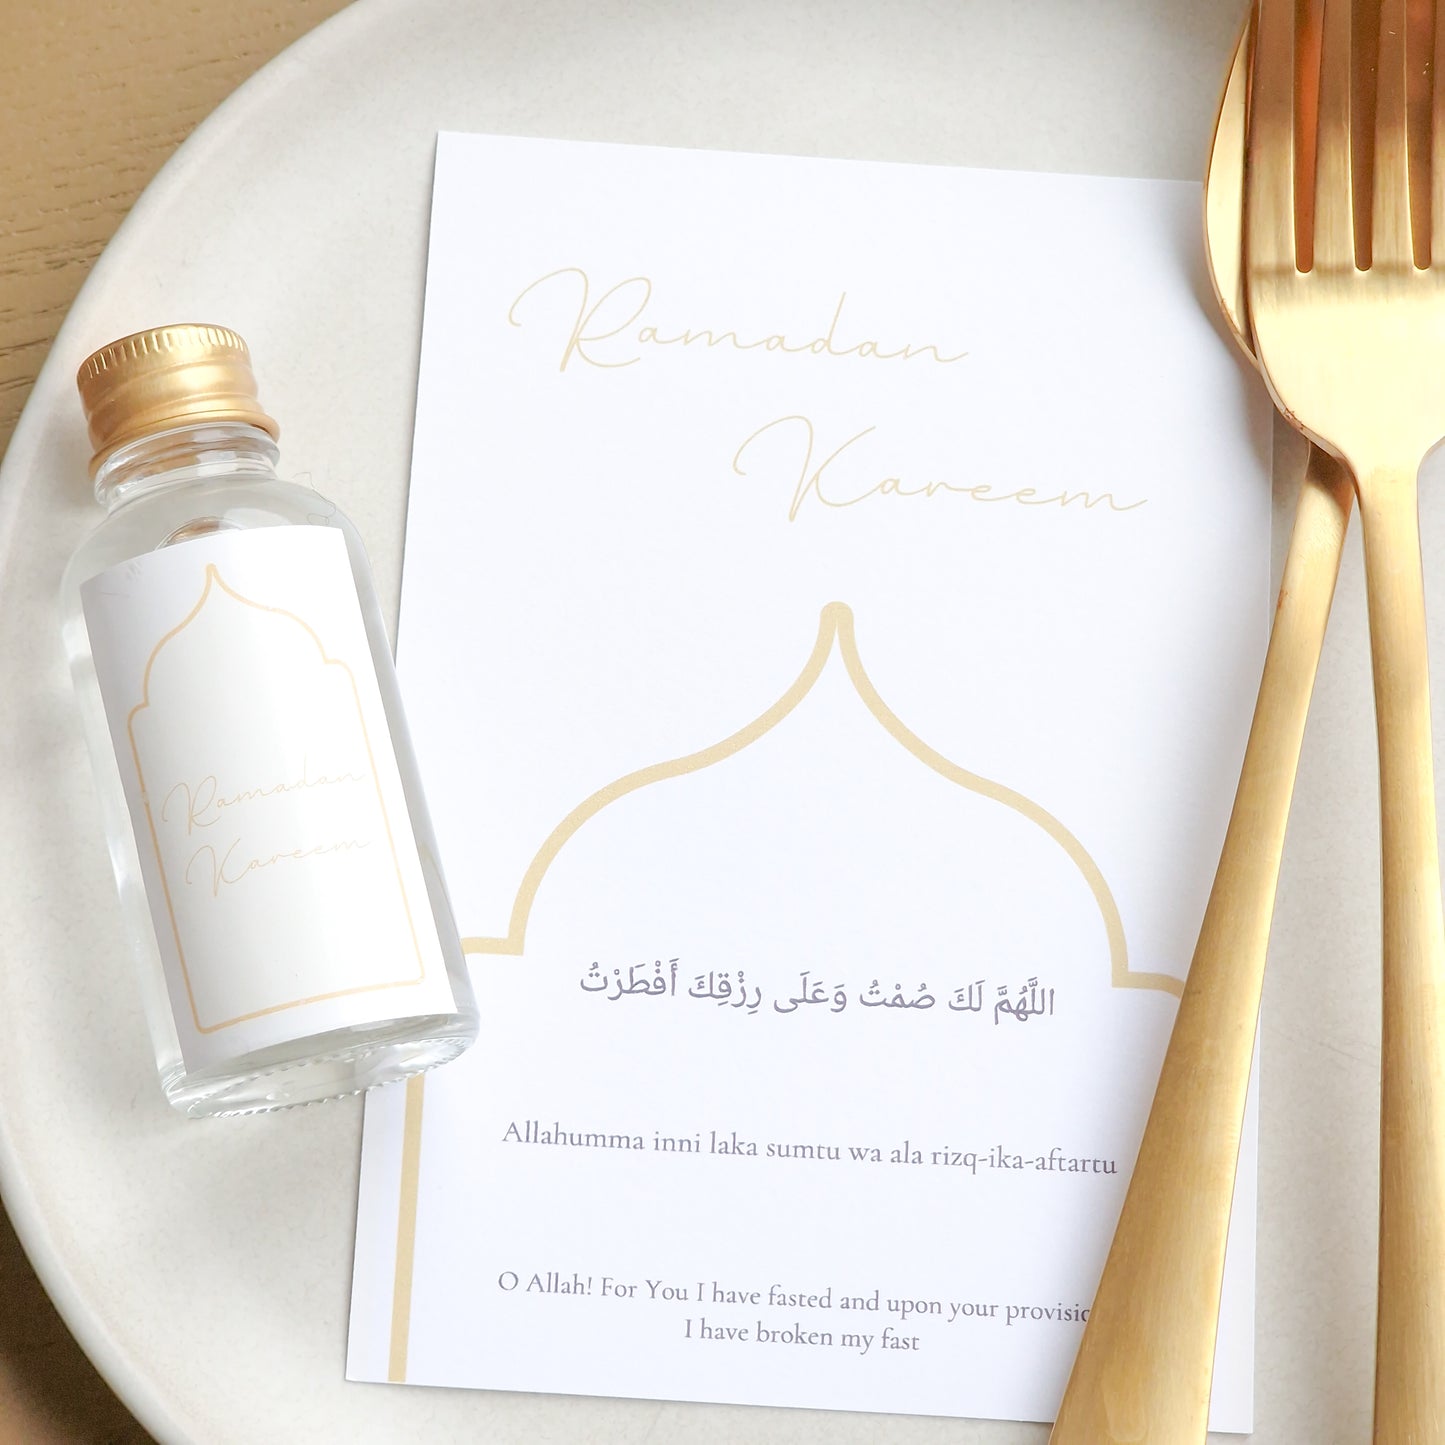 Ramadan
Kareem
اللَّهُمَّ لَكَ صُمْتُ وَعَلَى رِزْقِكَ أَفْطَرْتُ
Allahumma inni laka sumtu wa ala rizq-ika-aftartu
O Allah! For You I have fasted and upon your
I have broken my fast
Ramadan
Kareem